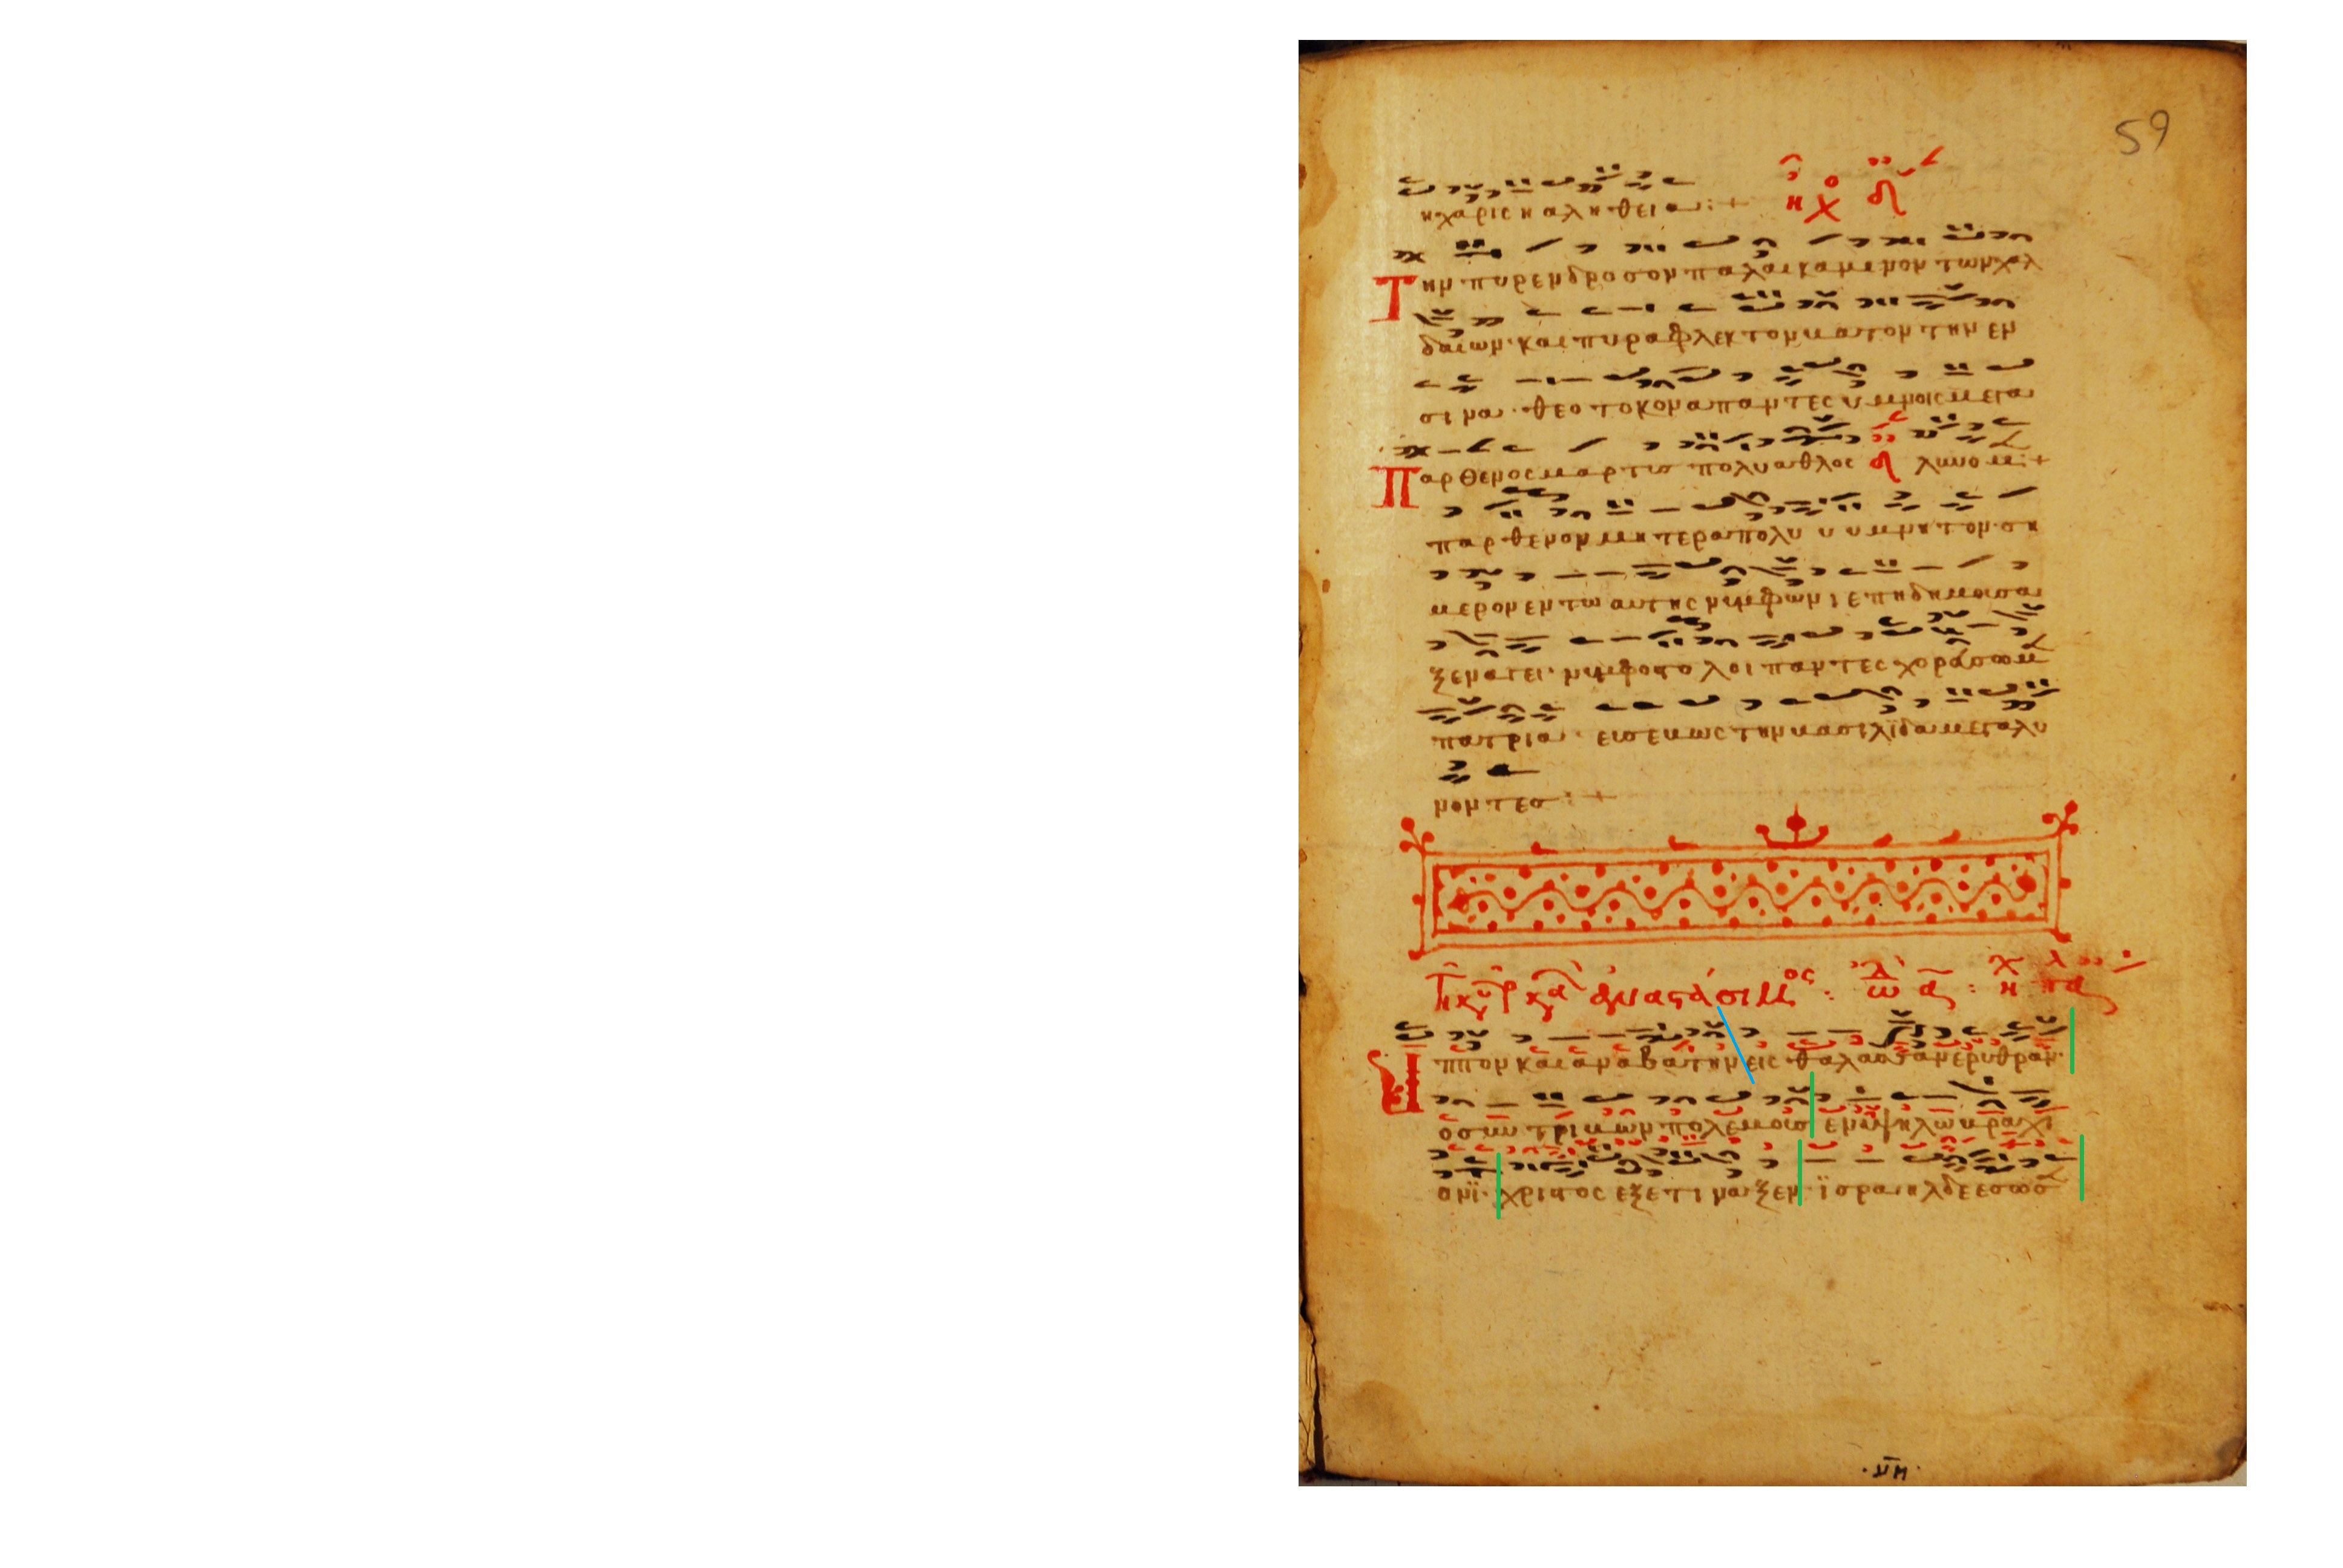 59
η χαρις η αληθεια :+ ηχο δ
Την πυρενδροσον παλαι καμινον των χαλ
δαιων · και πυραφλεκτον βατον την εν
σινα · θεοτοκον απαντες υμνοις μεγα
Παρθενος μαρτυς πολυαθλος δ :+
παρθενον μητερα πολυ υμνητον · ση
μερον εν τω αυτης νυμφωνι επιδημουσα
ξεναγει · νυμφοστολοι παντες χορ
πατρια · εισ την βασιλιδα μεγαλυ
νοντες :+
Τη κυρ κα αναστασιμος : ωδ α : η πα
Ιππον και αναβατην εις θαλασσαν ερυθραν ·
ο συντριβων πολεμους εν υψηλω βραχι
ονι · χριστος εξετιναξεν ϊσραηλ δε εσωσ
·πη·